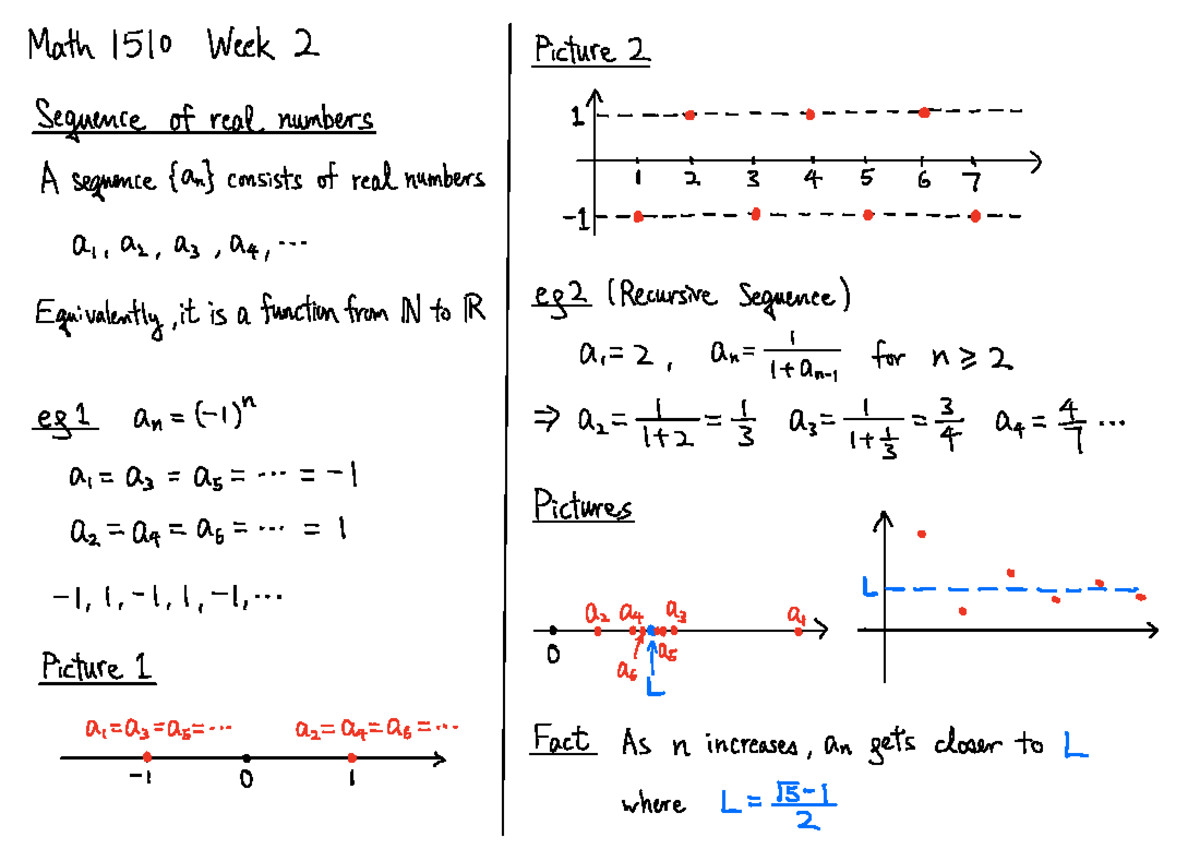 Math 1510 Week 2
Sequence of real numbers
A sequence {aₙ} consists of real numbers
a₁, a₂, a₃, a₄, ⋯
Equivalently, it is a function from ℕ to ℝ
eg1 aₙ = (-1)ⁿ
a₁ = a₃ = a₅ = ⋯ = -1
a₂ = a₄ = a₆ = ⋯ = 1
-1, 1, -1, 1, -1, ⋯
Picture 1
a₁=a₃=a₅=⋯ a₂=a₄=a₆=⋯
-1 0 1
Picture 2
1
1 2 3 4 5 6 7
-1
eg2 (Recursive Sequence)
a₁=2, aₙ = 1/(1+aₙ₋₁) for n ⩾ 2
⇒ a₂ = 1/(1+2) = 1/3 a₃ = 1/(1+1/3) = 3/4 a₄ = 4/7 ⋯
Pictures
L
a₂ a₄ a₃ a₁
0 a₆ a₅
L
Fact As n increases, aₙ gets closer to L
where L = (√5-1)/2